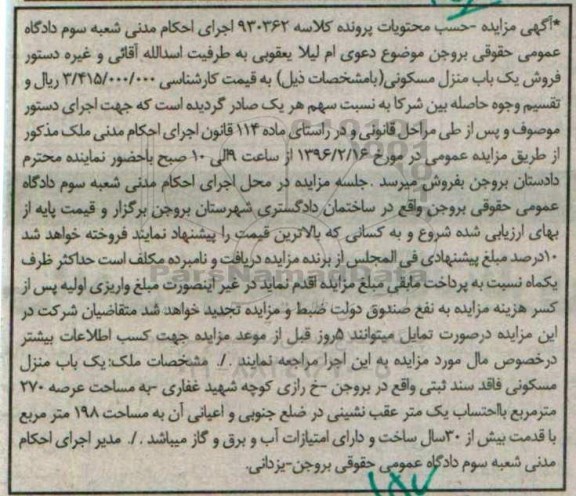 *آگهی مزایده -حسب محتویات پرونده کلاسه ۹۳۰۳۶۲ اجرای احکام مدنی شعبه سوم دادگاه
عمومی حقوقی بروجن موضوع دعوی ام لیلا یعقوبی به طرفیت اسدالله آقائی و غیره دستور
فروش یک باب منزل مسکونی(بامشخصات ذیل) به قیمت کارشناسی ۳/۴۱۵/۰۰۰/۰۰۰ ریال و
تقسیم وجوه حاصله بین شرکا به نسبت سهم هر یک صادر گردیده است که جهت اجرای دستور
موصوف و پس از طی مراحل قانونی و در راستای ماده ۱۱۴ قانون اجرای احکام مدنی ملک مذکور
از طریق مزایده عمومی در مورخ ۱۳۹۶/۲/۱۶ از ساعت ۹الی ۱۰ صبح باحضور نماینده محترم
دادستان بروجن بفروش میرسد .جلسه مزایده در محل اجرای احکام مدنی شعبه سوم دادگاه
عمومی حقوقی بروجن واقع در ساختمان دادگستری شهرستان بروجن برگزار و قیمت پایه از
بهای ارزیابی شده شروع و به کسانی که بالاترین قیمت را پیشنهاد نمایند فروخته خواهد شد
۱۰درصد مبلغ پیشنهادی فی المجلس از برنده مزایده دریافت و نامبرده مکلف است حداکثر ظرف
یکماه نسبت به پرداخت مابقی مبلغ مزایده اقدم نماید در غیر اینصورت مبلغ واریزی اولیه پس از
کسر هزینه مزایده به نفع صندوق دولت ضبط و مزایده تجدید خواهد شد متقاضیان شرکت در
این مزایده درصورت تمایل میتوانند ۵روز قبل از موعد مزایده جهت کسب اطلاعات بیشتر
درخصوص مال مورد مزایده به این اجرا مراجعه نمایند ./. مشخصات ملک:یک باب منزل
مسکونی فاقد سند ثبتی واقع در بروجن -خ رازی کوچه شهید غفاری -به مساحت عرصه ۲۷۰
مترمربع بااحتساب یک متر عقب نشینی در ضلع جنوبی و اعیانی آن به مساحت ۱۹۸ متر مربع
با قدمت بیش از ۳۰سال ساخت و دارای امتیازات آب و برق و گاز میباشد ./. مدیر اجرای احکام
مدنی شعبه سوم دادگاه عمومی حقوقی بروجن-یزدانی.
ParsNamadData